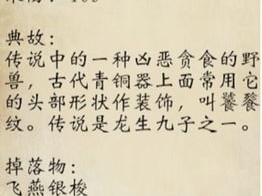 典故：
传说中的一种凶恶贪食的野
兽，古代青铜器上面常用它
的头部形状作装饰，叫饕餮
纹。传说是龙生九子之一。
掉落物：
飞燕银梭